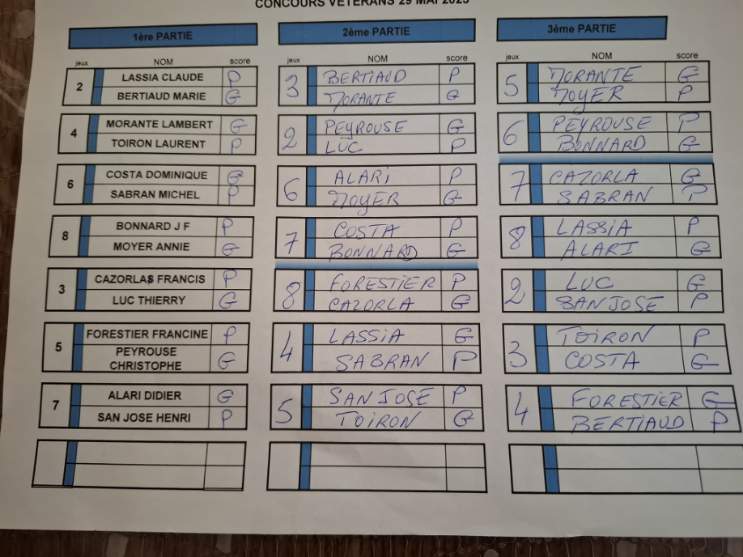 CONCOURS VETERANS 29 MAI 2023
1ère PARTIE
jeux NOM score
2 LASSIA CLAUDE P
BERTIAUD MARIE G
4 MORANTE LAMBERT G
TOIRON LAURENT P
6 COSTA DOMINIQUE G
SABRAN MICHEL P
8 BONNARD J F P
MOYER ANNIE G
3 CAZORLAS FRANCIS P
LUC THIERRY G
5 FORESTIER FRANCINE P
PEYROUSE
CHRISTOPHE G
7 ALARI DIDIER G
SAN JOSE HENRI P
2ème PARTIE
jeux NOM score
3 BERTIAUD P
MORANTE G
2 PEYROUSE G
LUC P
6 ALARI P
MOYER G
7 COSTA P
BONNARD G
8 FORESTIER P
CAZORLA G
4 LASSIA G
SABRAN P
5 SAN JOSE P
TOIRON G
3ème PARTIE
jeux NOM score
5 MORANTE G
MOYER P
6 PEYROUSE P
BONNARD G
7 CAZORLA G
SABRAN P
8 LASSIA P
ALARI G
2 LUC G
SAN JOSE P
3 TOIRON P
COSTA G
4 FORESTIER G
BERTIAUD P